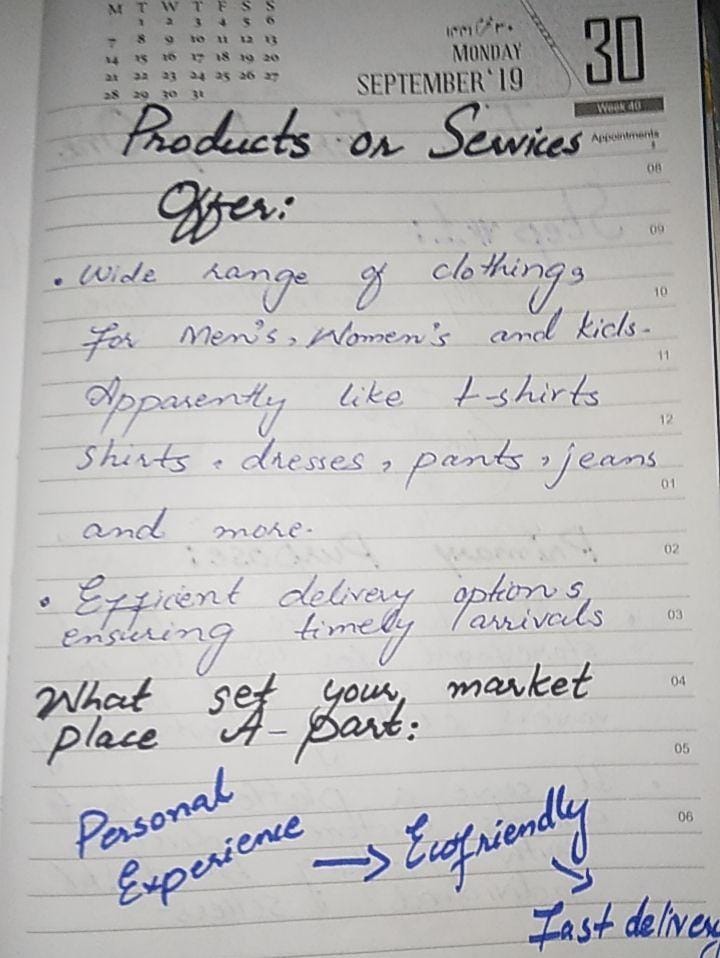 M T W T F S S
1 2 3 4 5 6
7 8 9 10 11 12 13
14 15 16 17 18 19 20
21 22 23 24 25 26 27
28 29 30 31
MONDAY
SEPTEMBER'19
30
Week 40
Appointments
Products or Services
Offer:
08
09
• Wide range of clothings
10
for Men's, Women's and kids.
11
Apparently like t-shirts
12
shirts, dresses, pants, jeans
01
and more.
02
• Efficient delivery options,
ensuring timely arrivals
03
What set your market
04
place A-part:
05
Personal
Experience → Ecofriendly
06
Fast delivery